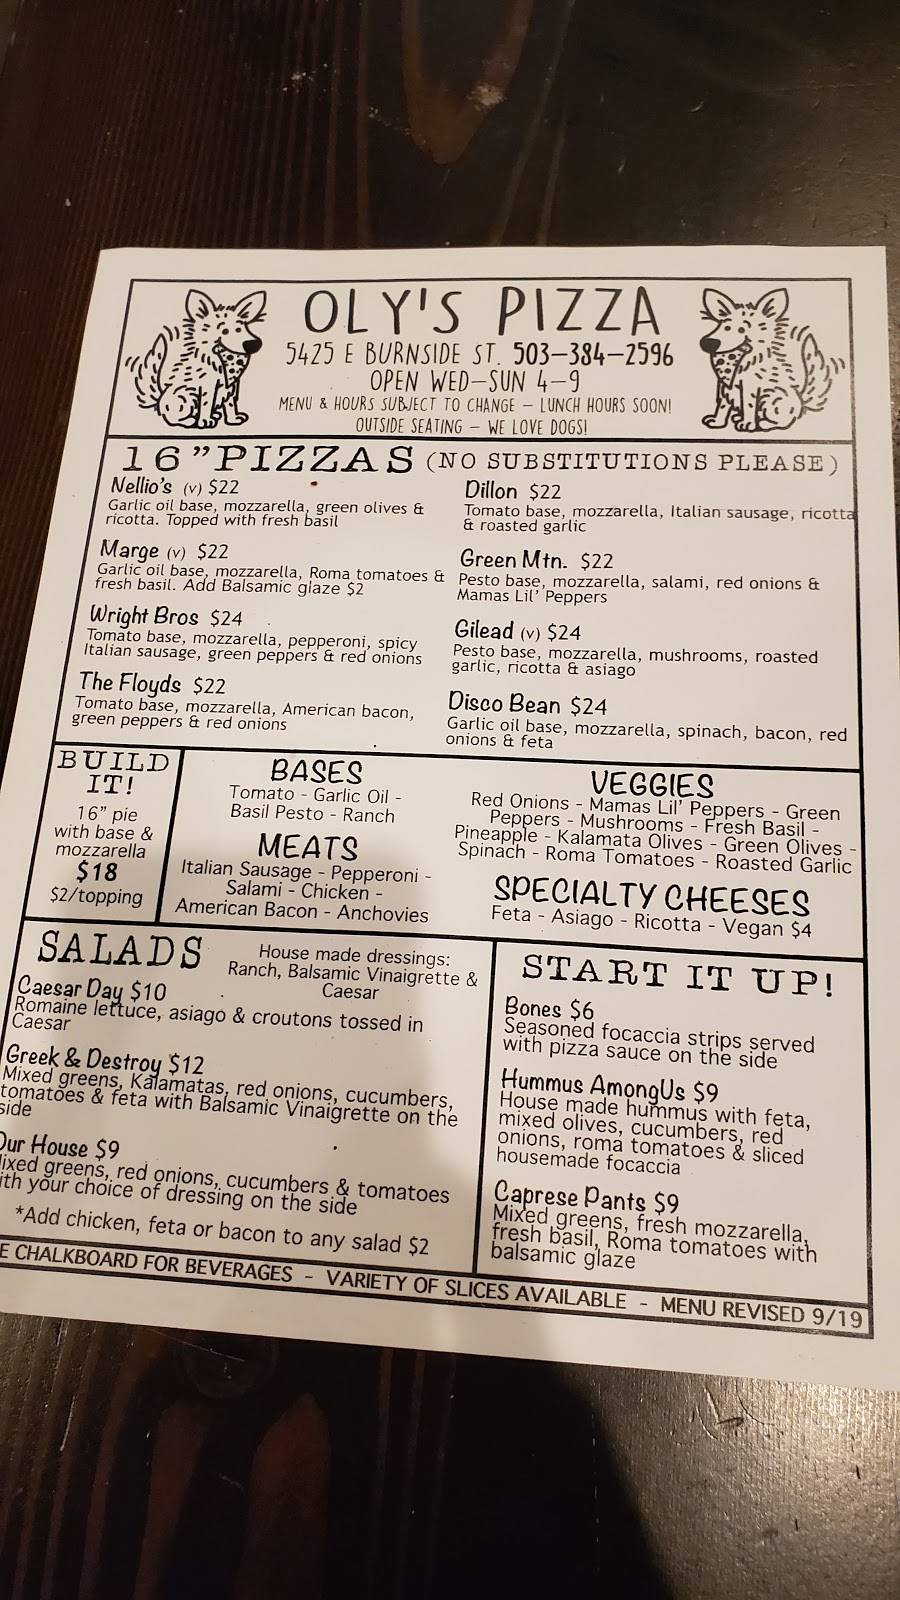 OLY'S PIZZA
5425 E BURNSIDE ST. 503-384-2596
OPEN WED-SUN 4-9
MENU & HOURS SUBJECT TO CHANGE - LUNCH HOURS SOON!
OUTSIDE SEATING - WE LOVE DOGS!
16" PIZZAS (NO SUBSTITUTIONS PLEASE)
Nellio's (v) $22
Garlic oil base, mozzarella, green olives &
ricotta. Topped with fresh basil
Marge (v) $22
Garlic oil base, mozzarella, Roma tomatoes &
fresh basil. Add Balsamic glaze $2
Wright Bros $24
Tomato base, mozzarella, pepperoni, spicy
Italian sausage, green peppers & red onions
The Floyds $22
Tomato base, mozzarella, American bacon,
green peppers & red onions
Dillon $22
Tomato base, mozzarella, Italian sausage, ricotta
& roasted garlic
Green Mtn. $22
Pesto base, mozzarella, salami, red onions &
Mamas Lil' Peppers
Gilead (v) $24
Pesto base, mozzarella, mushrooms, roasted
garlic, ricotta & asiago
Disco Bean $24
Garlic oil base, mozzarella, spinach, bacon, red
onions & feta
BUILD
IT!
16" pie
with base &
mozzarella
$18
$2/topping
BASES
Tomato - Garlic Oil -
Basil Pesto - Ranch
MEATS
Italian Sausage - Pepperoni -
Salami - Chicken -
American Bacon - Anchovies
VEGGIES
Red Onions - Mamas Lil' Peppers - Green
Peppers - Mushrooms - Fresh Basil -
Pineapple - Kalamata Olives - Green Olives -
Spinach - Roma Tomatoes - Roasted Garlic
SPECIALTY CHEESES
Feta - Asiago - Ricotta - Vegan $4
SALADS
House made dressings:
Ranch, Balsamic Vinaigrette &
Caesar
Caesar Day $10
Romaine lettuce, asiago & croutons tossed in
Caesar
Greek & Destroy $12
Mixed greens, Kalamatas, red onions, cucumbers,
tomatoes & feta with Balsamic Vinaigrette on the
side
Our House $9
ixed greens, red onions, cucumbers & tomatoes
ith your choice of dressing on the side
*Add chicken, feta or bacon to any salad $2
START IT UP!
Bones $6
Seasoned focaccia strips served
with pizza sauce on the side
Hummus AmongUs $9
House made hummus with feta,
mixed olives, cucumbers, red
onions, roma tomatoes & sliced
housemade focaccia
Caprese Pants $9
Mixed greens, fresh mozzarella,
fresh basil, Roma tomatoes with
balsamic glaze
E CHALKBOARD FOR BEVERAGES - VARIETY OF SLICES AVAILABLE - MENU REVISED 9/19